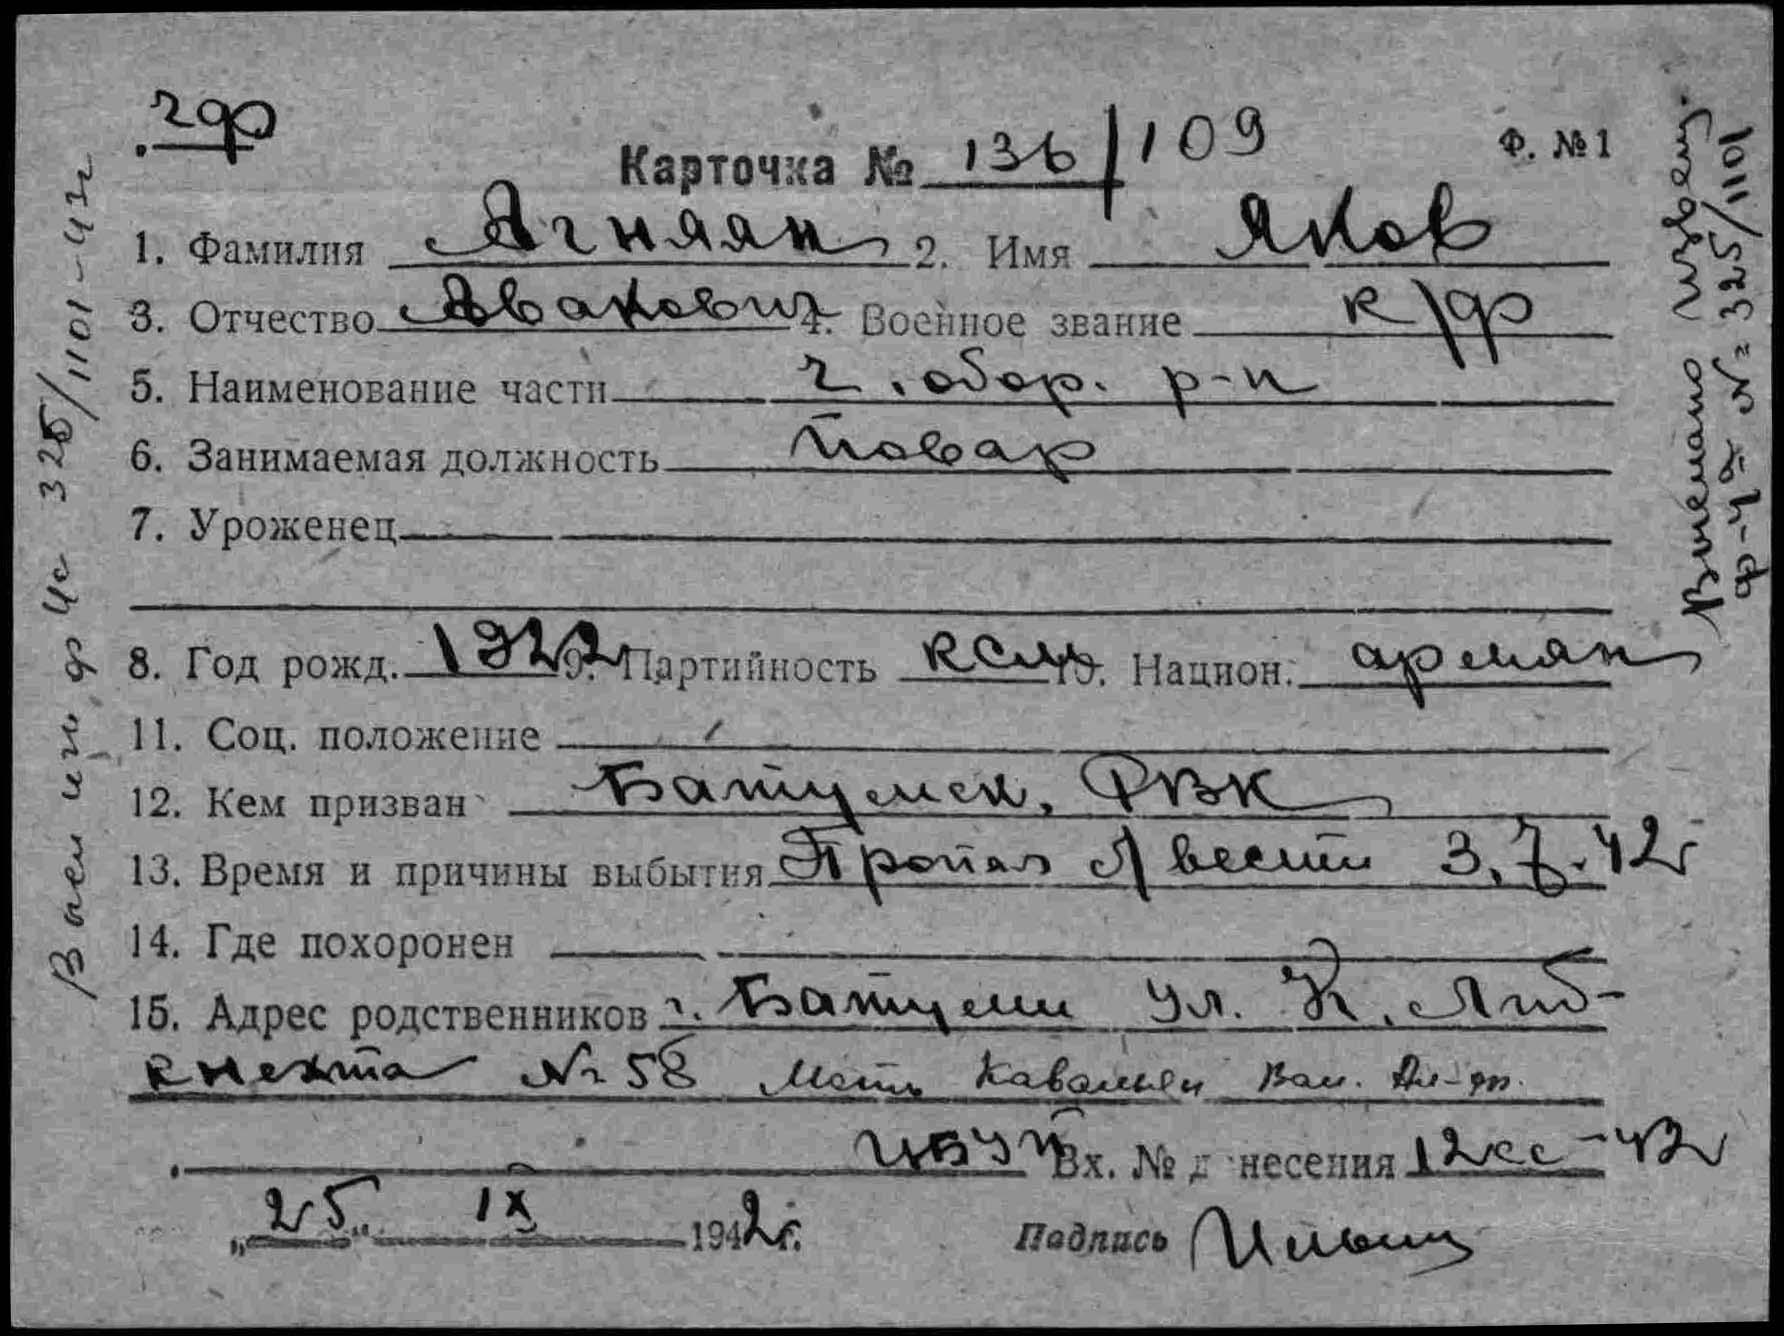 чф
Карточка № 136/109 Ф. №1
1. Фамилия Агняян 2. Имя Яков
3. Отчество Авакович 4. Военное звание к/ф
5. Наименование части ч. обор. р-н
6. Занимаемая должность Повар
7. Уроженец
8. Год рожд. 1922 9. Партийность ксм 10. Национ. армян
11. Соц. положение
12. Кем призван Батумск. РВК
13. Время и причины выбытия Пропал б/вести 3.7.42г
14. Где похоронен
15. Адрес родственников г. Батуми ул. К. Либ-
кнехта № 58 Мать
Вх. № донесения 12сс-42
"25" IX 1942г.
Подпись
325/1101-42г
Выслано извещ.
ф-4 № 325/1101